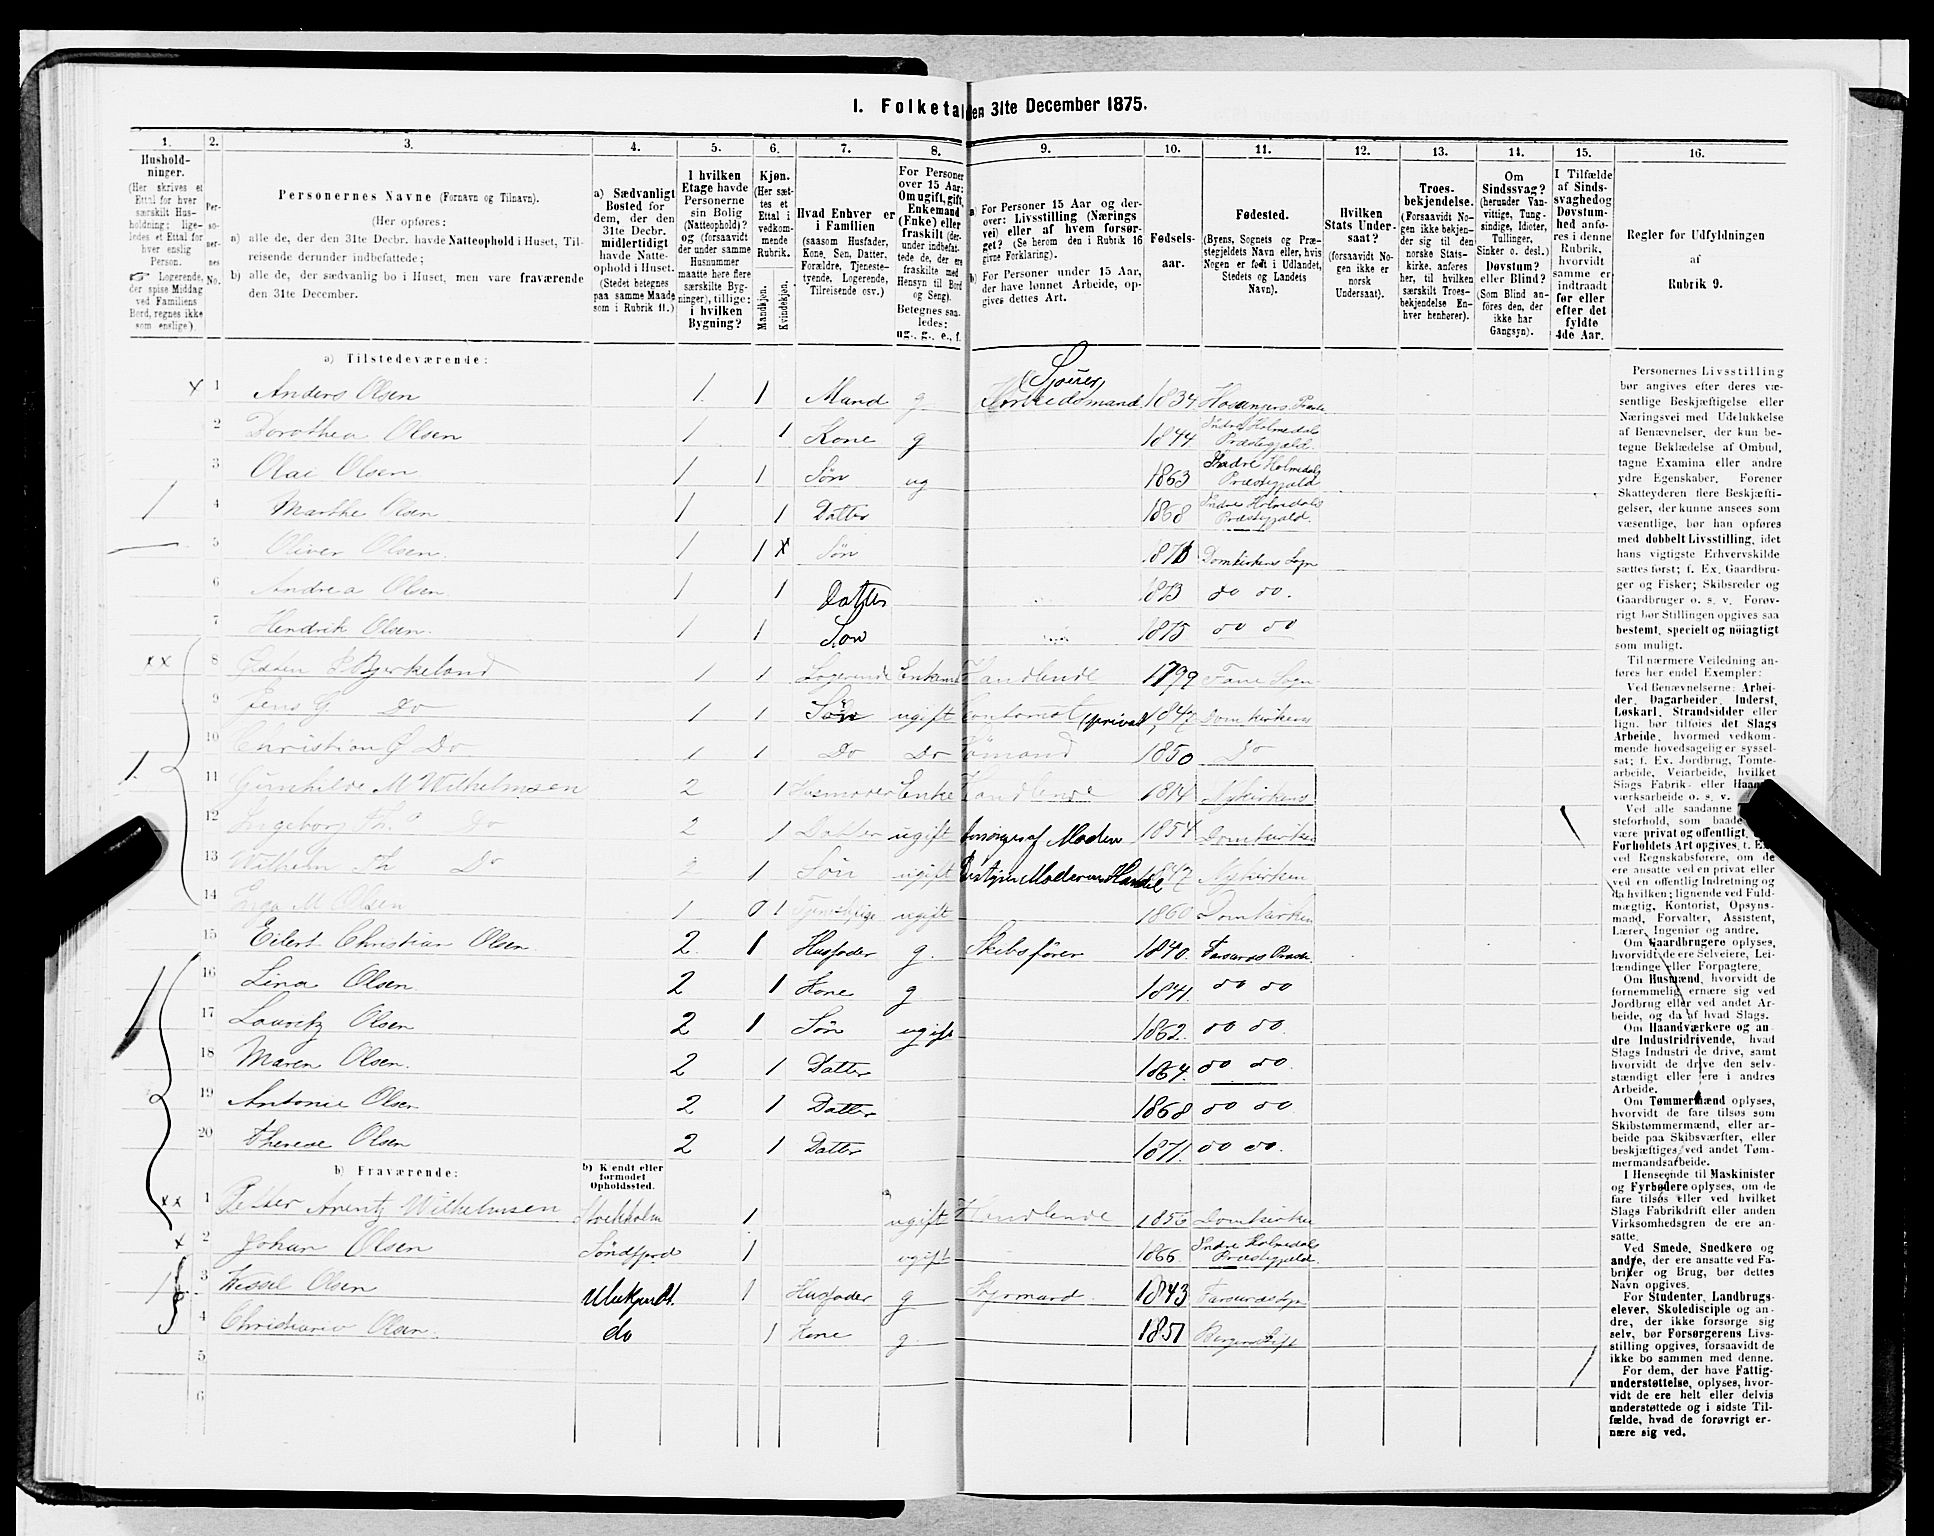 I. Folketal den 31te December 1875.
1. 2. 3. 4. 5. 6. 7. 8. 9. 10. 11. 12. 13. 14. 15. 16.
Hushold-
ninger.
(Her skrives et
Ettal for hver
særskilt Hus-
holdning; lige-
ledes et Ettal for
hver enslig
Person.
☞ Logerende,
der spise Middag
ved Familiens
Bord, regnes ikke
som enslige).
Per-
so-
ner-
nes
No.
Personernes Navne (Fornavn og Tilnavn).
(Her opføres:
a) alle de, der den 31te Decbr. havde Natteophold i Huset, Til-
reisende derunder indbefattede;
b) alle de, der sædvanlig bo i Huset, men vare fraværende
den 31te December.
a) Sædvanligt
Bosted for
dem, der den
31te Decbr.
midlertidigt
havde Natte-
ophold i Huset.
(Stedet betegnes
paa samme Maade
som i Rubrik 11.)
I hvilken
Etage havde
Personerne
sin Bolig
(Natteophold)?
og (forsaavidt
under samme
Husnummer
maatte høre flere
særskilte Byg-
ninger), tillige:
i hvilken
Bygning?
Kjøn.
(Her sæt-
tes et
Ettal i
vedkom-
mende
Rubrik.
Mandkjøn.
Kvindekjøn.
Hvad Enhver er
i Familien
(saasom Husfader,
Kone, Søn, Datter,
Forældre, Tjeneste-
tyende, Logerende,
Tilreisende osv.)
For Personer
over 15 Aar:
Om ugift, gift,
Enkemand
(Enke) eller
fraskilt (der-
under indbefat-
tede de, der ere
fraskilte med
Hensyn til Bord
og Seng).
Betegnes saa-
ledes:
ug., g., e., f.
a) For Personer 15 Aar og der-
over: Livsstilling (Nærings
vei) eller af hvem forsør-
get? (Se herom den i Rubrik 16
givne Forklaring).
b) For Personer under 15 Aar,
der have lønnet Arbeide, op-
gives dettes Art.
Fødsels-
aar.
Fødested.
(Byens, Sognets og Præ-
stegjeldets Navn eller, hvis
Nogen er født i Udlandet,
Stedets og Landets
Navn).
Hvilken
Stats Under-
saat?
(forsaavidt No-
gen ikke er
norsk
Undersaat).
Troes-
bekjendelse.
(Forsaavidt No-
gen ikke bekjen-
der sig til den
norske Stats-
kirke, anføres
her, til hvilken
særskilt Troes-
bekjendelse En-
hver henhører).
Om
Sindssvag?
(herunder Van-
vittige, Tung-
sindige, Idioter,
Tullinger,
Sinker o. desl.)
Døvstum?
eller Blind?
(Som Blind an-
føres den, der
ikke har
Gangsyn).
I Tilfælde
af Sinds-
svaghedog
Døvstum-
hed anfø-
res i denne
Rubrik,
hvorvidt
samme er
indtraadt
før eller
efter det
fyldte
4de Aar.
Regler for Udfyldningen
af
Rubrik 9.
a) Tilstedeværende:
Sjouer,
1 Anders Olsen 1 1 Mand g Arbeidsmand 1834 Hosangers Præste
2 Dorothea Olsen 1 1 Kone g 1844 Indre Holmedals Præstegjæld.
3 Olai Olsen 1 1 Søn ug 1863 Indre Holmedals Præstegjæld
4 Marthe Olsen 1 1 Datter 1868 Indre Holmedals Præstegjæld.
5 Oliver Olsen. 1 1 Søn Domkirkens Sogn
6 Andrea Olsen. 1 1 Datter 1873 do do.
7 Hendrik Olsen. 1 1 Søn 1875 do do
8 Bjerkeland 1 1 Logerende Enkem Handlende 1799 Fane Sogn
9 Jens G Do 1 1 Søn ugift Contorist (privat) 1847 Domkirkens
10 Christian Ø Do 1 1 Do Do Sømand 1850 Do
11 Gunhilde M Wilhelmsen 2 1 Husmoder Enke Handlende 1814 Nykirkens
12 Ingeborg Do 2 1 Datter ugift forsørges af Moderen 1854 Domkirken
13 Wilhelm Th Do 2 1 Søn ugift Bestyrer Moderens Handel 1847 Nykirken
14 Inga M Olsen 1 0 1 Tjenestpige ugift 1860 Domkirken
15 Eilert Christian Olsen. 2. 1 Husfader g. Skibsfører 1840. Farsunds Præste.
16 Lina Olsen 2 1 Kone g 1841. do do
17 Lauritz Olsen 2 1 Søn ugift 1862. do do.
18 Maren Olsen. 2 1 Datter 1864. do do.
19 Antonie Olsen 2 1 Datter 1868 do do.
20 Therese Olsen 2 1 Datter 1871. do do.
b) Fraværende:
b) Kjendt eller
formodet
Opholdssted.
1 Petter Arentz Wilhelmsen Stockholm 1 ugift Handlende Domkirken
2 Johan Olsen Søndfjord 1 ugift 1866. Indre Holmedals Præstegjæld.
3 Wessel Olsen Ubekjendt. 1 Husfader g Styrmand. 1843
4 Olsen. do 1 Kone g 1851 Bergens Stift
5
6
Personernes Livsstilling
bør angives efter deres væ-
sentlige Beskjæftigelse eller
Næringsvei med Udelukkelse
af Benævnelser, der kun be-
tegne Beklædelse af Ombud,
tagne Examina eller andre
ydre Egenskaber. Forener
Skatteyderen flere Beskjæfti-
gelser, der kunne ansees som
væsentlige, bør han opføres
med dobbelt Livsstilling, idet
hans vigtigste Erhvervskilde
sættes først; f. Ex. Gaardbru-
ger og Fisker; Skibsreder og
Gaardbruger o. s. v. Forøv-
rigt bør Stillingen opgives saa
bestemt, specielt og nøiagtigt
som muligt.
Til nærmere Veiledning an-
føres her endel Exempler:
Ved Benævnelserne: Arbei-
der, Dagarbeider, Inderst,
Løskarl, Strandsidder eller
lign. bør tilføies det Slags
Arbeide, hvormed vedkom-
mende hovedsagelig er syssel-
sat; f. Ex. Jordbrug, Tomte-
arbeide, Veiarbeide, hvilket
Slags Fabrik- eller Haand-
værksarbeide o. s. v.
Ved alle saadanne
steforhold, som baade
være privat og offentligt,
Forholdets Art opgives, f. Ex.
ved Regnskabsførere, om de
ere ansatte ved en privat eller
ved en offentlig Indretning og
da hvilken; lignende ved Fuld-
mægtig, Kontorist, Opsyns-
mand, Forvalter, Assistent,
Lærer, Ingeniør og andre.
Om Gaardbrugere oplyses,
hvorvidt de ere Selveiere, Lei-
lændinge eller Forpagtere.
Om Husmænd, hvorvidt de
fornemmelig ernære sig ved
Jordbrug eller ved andet Ar-
beide, og da af hvad Slags.
Om Haandværkere og an-
dre Industridrivende, hvad
Slags Industri de drive, samt
hvorvidt de drive den selv-
stændigt eller ere i andres
Arbeide.
Om Tømmermænd oplyses,
hvorvidt de fare tilsøs som
Skibstømmermænd, eller ar-
beide paa Skibsværfter, eller
beskjæftiges ved andet Tøm-
mermandsarbeide.
I Henseende til Maskinister
og Fyrbødere oplyses, om de
fare tilsøs eller ved hvilket
Slags Fabrikdrift eller anden
Virksomhedsgren de ere an-
satte.
Ved Smede, Snedkere og
andre, der ere ansatte ved Fa-
briker og Brug, bør dettes
Navn opgives.
For Studenter, Landbrugs-
elever, Skoledisciple og an-
dre, der ikke forsørge sig
selv, bør Forsørgerens Livs-
stilling opgives, forsaavidt de
ikke bo sammen med denne.
For dem, der have Fattig-
understøttelse, oplyses, hvor-
vidt de ere helt eller delvis
understøttede og i sidste Til-
fælde, hvad de forøvrigt er-
nære sig ved.